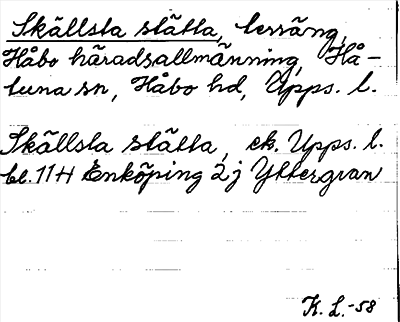 Skällsta slätta, terräng,
Håbo häradsallmänning, Hå-
tuna sn, Håbo hd, Upps. l.
Skällsta slätta, ek. Upps. l.
bl. 11H Enköping 2j Yttergran
K. L.-58